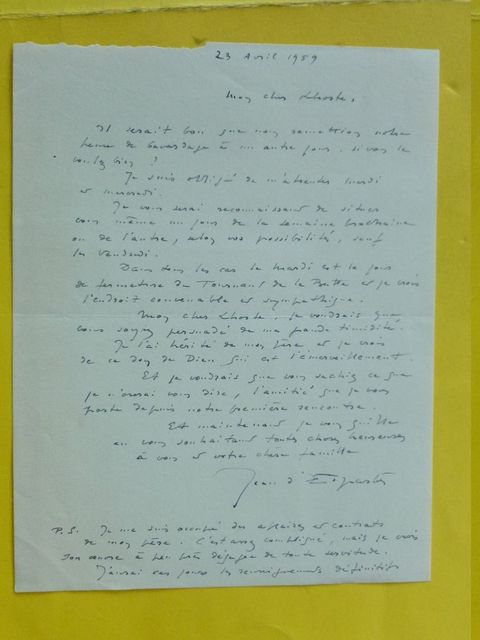 23 Avril 1959
Mon cher Lhoste,
Il serait bon que nous remettions notre
heure de bavardage à un autre jour, si vous le
voulez bien ?
Je suis obligé de m'absenter mardi
et mercredi.
Je vous serai reconnaissant de situer
vous même un jour de la semaine prochaine
ou de l'autre, selon vos possibilités, sauf
les Vendredi.
Dans tous les cas le mardi est le jour
de fermeture du Tournant de la Butte et je crois
l'endroit convenable et sympathique.
Mon cher Lhoste, je voudrais que
vous soyez persuadé de ma grande timidité.
Je l'ai hérité de mon père et je crois
de ce don de Dieu qui est l'émerveillement.
Et je voudrais que vous sachiez ce que
je n'oserai vous dire, l'amitié que je vous
porte depuis notre première rencontre.
Et maintenant je vous quitte
en vous souhaitant toutes choses heureuses
à vous et votre chère famille
Jean d'Esparbès
P.S. Je me suis occupé des affaires et contrats
de mon père. C'est assez compliqué, mais je crois
son œuvre à peu près dégagée de toute servitude.
J'aurai ces jours les renseignements définitifs